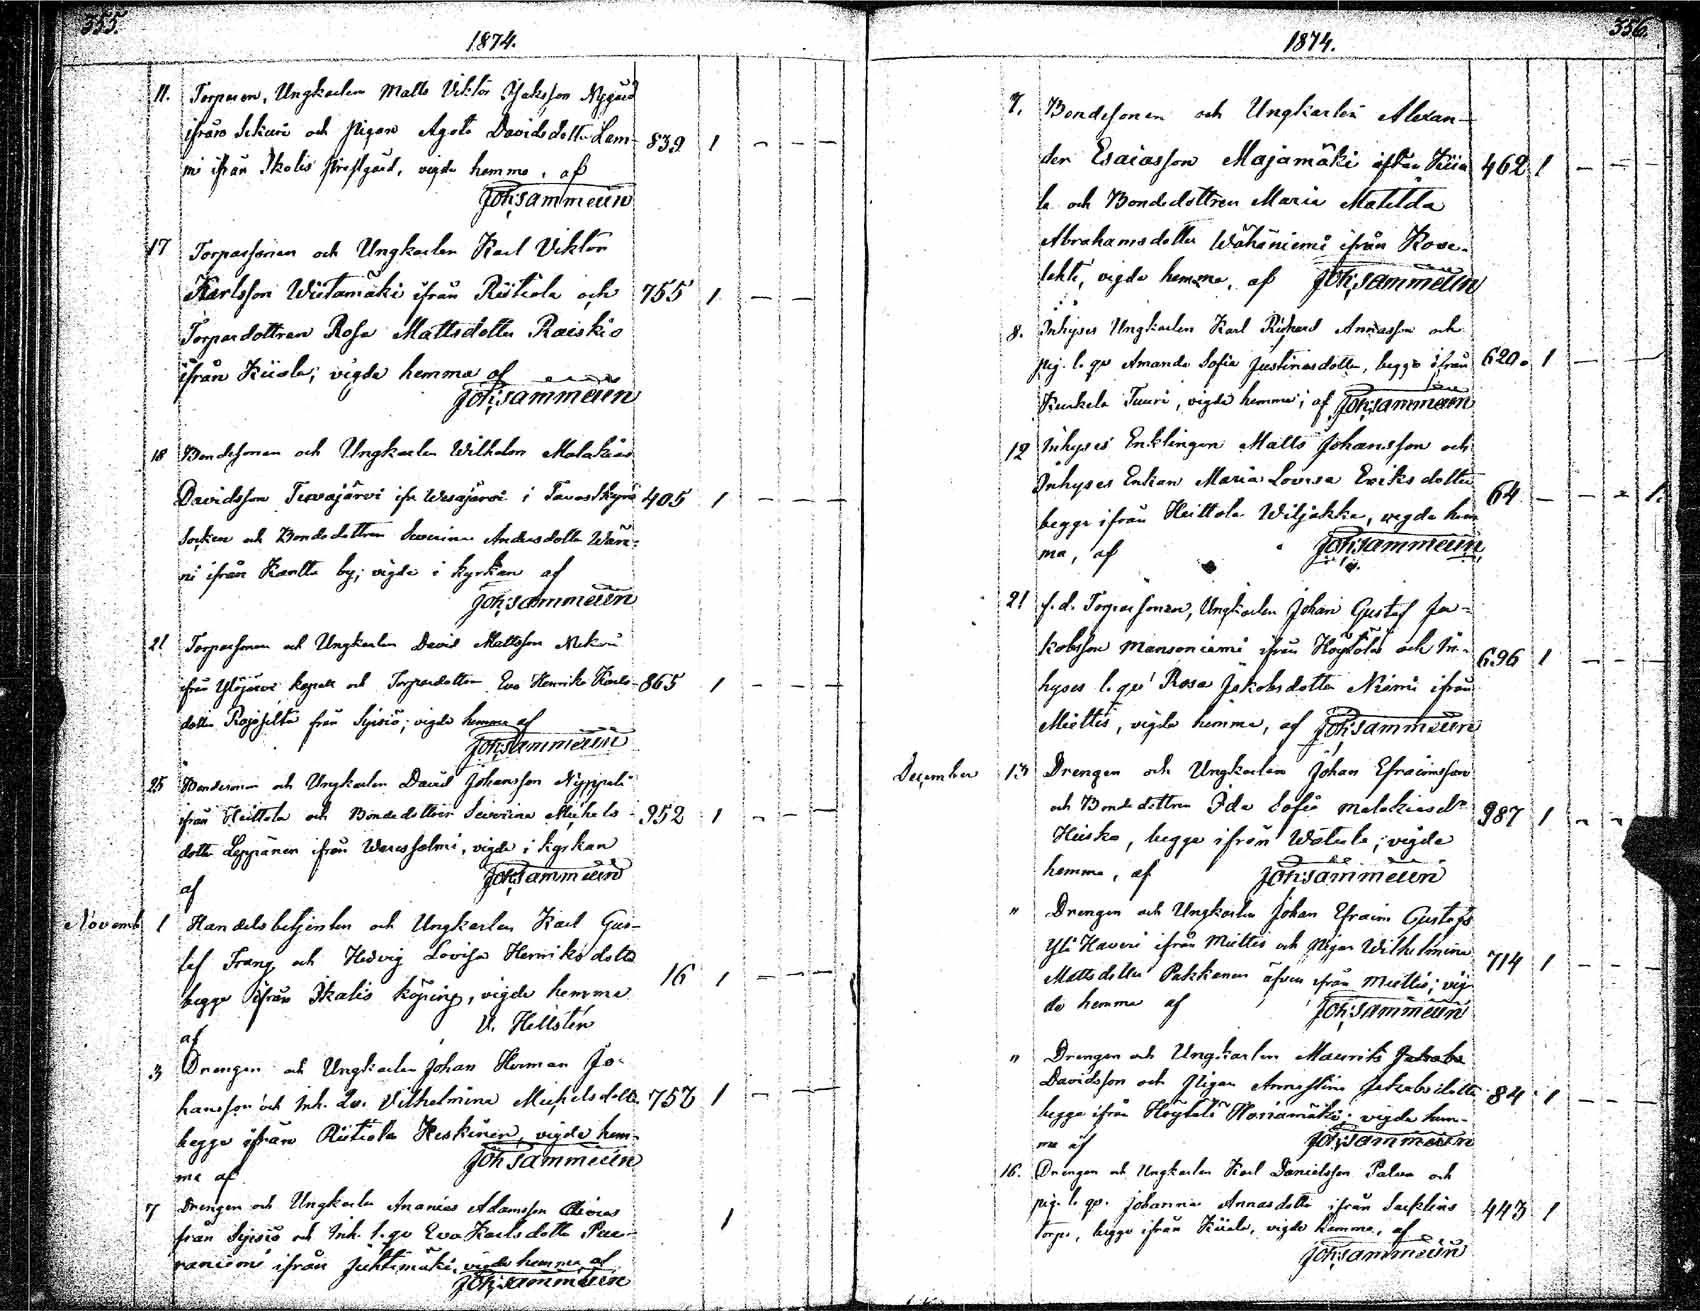 355.
1874.
11. Torparen, Ungkarlen Matts Viktor Nygård
ifrån och Pigan Agata Davidsdotter Lam- 839 1 - - -
mi ifrån Ikalis prestgård, vigde hemma, af
Joh: Sammelin
17 Torparsonen och Ungkarlen Karl Viktor
Karlsson Wiitamäki ifrån Riitiala och 755 1 - -
Torpardottren Rosa Mattsdotter Raiskio
ifrån Kiiala; vigde hemma af
Joh: Sammelin
18 Bondesonen och Ungkarlen Wilhelm Malakias
Davidsson Tervajärvi ifr. Wesajärvi i Tavastkyrö 405 1 - - -
Socken och Bondedottren Severina Andersdotter
ni ifrån Karttu by; vigde i kyrkan af
Joh: Sammelin
21 Torparsonen och Ungkarlen David Mattsson
ifrån Ylöjärvi kapell och Torpardottren Eva Henrika Karls- 865 1 - - -
dotter från Sipsiö; vigde hemma af
Joh: Sammelin
25 Bondesonen och Ungkarlen David Johansson Nyppeli
ifrån Heittola och Bondedottren Severina Michels- 952 1 - - -
dotter Leppänen ifrån, vigde i kyrkan
af Joh: Sammelin
Novemb. 1 Handelsbetjenten och Ungkarlen Karl Gus-
taf Frang och Hedvig Lovisa Henriksdotter
begge ifrån Ikalis köping, vigde hemma 16 1 - - -
af V. Hellstén
3 Drengen och Ungkarlen Johan Herman Jo-
hansson och Inh. Vilhelmina Michelsdotter 752 1 - - -
begge ifrån Riitiala Keskinen, vigde hem-
ma af Joh: Sammelin
7 Drengen och Ungkarlen Ananias Adamsson
från Sipsiö och Inh. l. qv. Eva Karlsdotter 1
ifrån Juhtimäki, vigde hemma af
Joh: Sammelin
356.
1874.
7. Bondesonen och Ungkarlen Alexan-
der Esaiasson Majamäki ifrån Kiia 462 1 - - -
la och Bondedottren Maria Matilda
Abrahamsdotter Wähäniemi ifrån Kove-
lahti, vigde hemma, af Joh: Sammelin
8. Inhyses Ungkarlen Karl Richard Annasson och
pig. l. qv. Amanda Sofia Justinasdotter, begge ifrån 620 1 - -
Kurkela Tuuri, vigde hemma; af Joh: Sammelin
12 Inhyses Enklingen Matts Johansson och
Inhyses Enkan Maria Lovisa Eriksdotter 64 - - - 1.
begge ifrån Heittola Wiljakka, vigde hem
ma, af Joh: Sammelin
21 f. d. Torparsonen, Ungkarlen Johan Gustaf Ja-
kobsson Mansoniemi ifrån Höytölä och In- 696 1 - - -
hyses l. qv. Rosa Jakobsdotter Niemi ifrån
Miettis, vigde hemma, af Joh: Sammelin
December 13 Drengen och Ungkarlen Johan Efraimsson
och Bondedottren Ida Sofia Malakiasdr 987 1 - -
Heiska, begge ifrån; vigde
hemma, af Joh: Sammelin
" Drengen och Ungkarlen Johan Efraim Gustafs
Yli Haveri ifrån Miettis och Pigan Wilhelmina 714 1 - - -
Mattsdotter Pakkanen äfven ifrån Miettis; vig-
de hemma af Joh: Sammelin
" Drengen och Ungkarlen Maurits Jakobs
Davidsson och Pigan Anna Stina Jakobsdotter 84 1 - - -
begge ifrån Höytölä; vigde hem-
ma af Joh: Sammelin
16. Drengen och Ungkarlen Karl Danielsson Palva och
pig. l. qv. Johanna Annasdotter ifrån 443 1
torp, begge ifrån Kiiala, vigde hemma, af
Joh: Sammelin